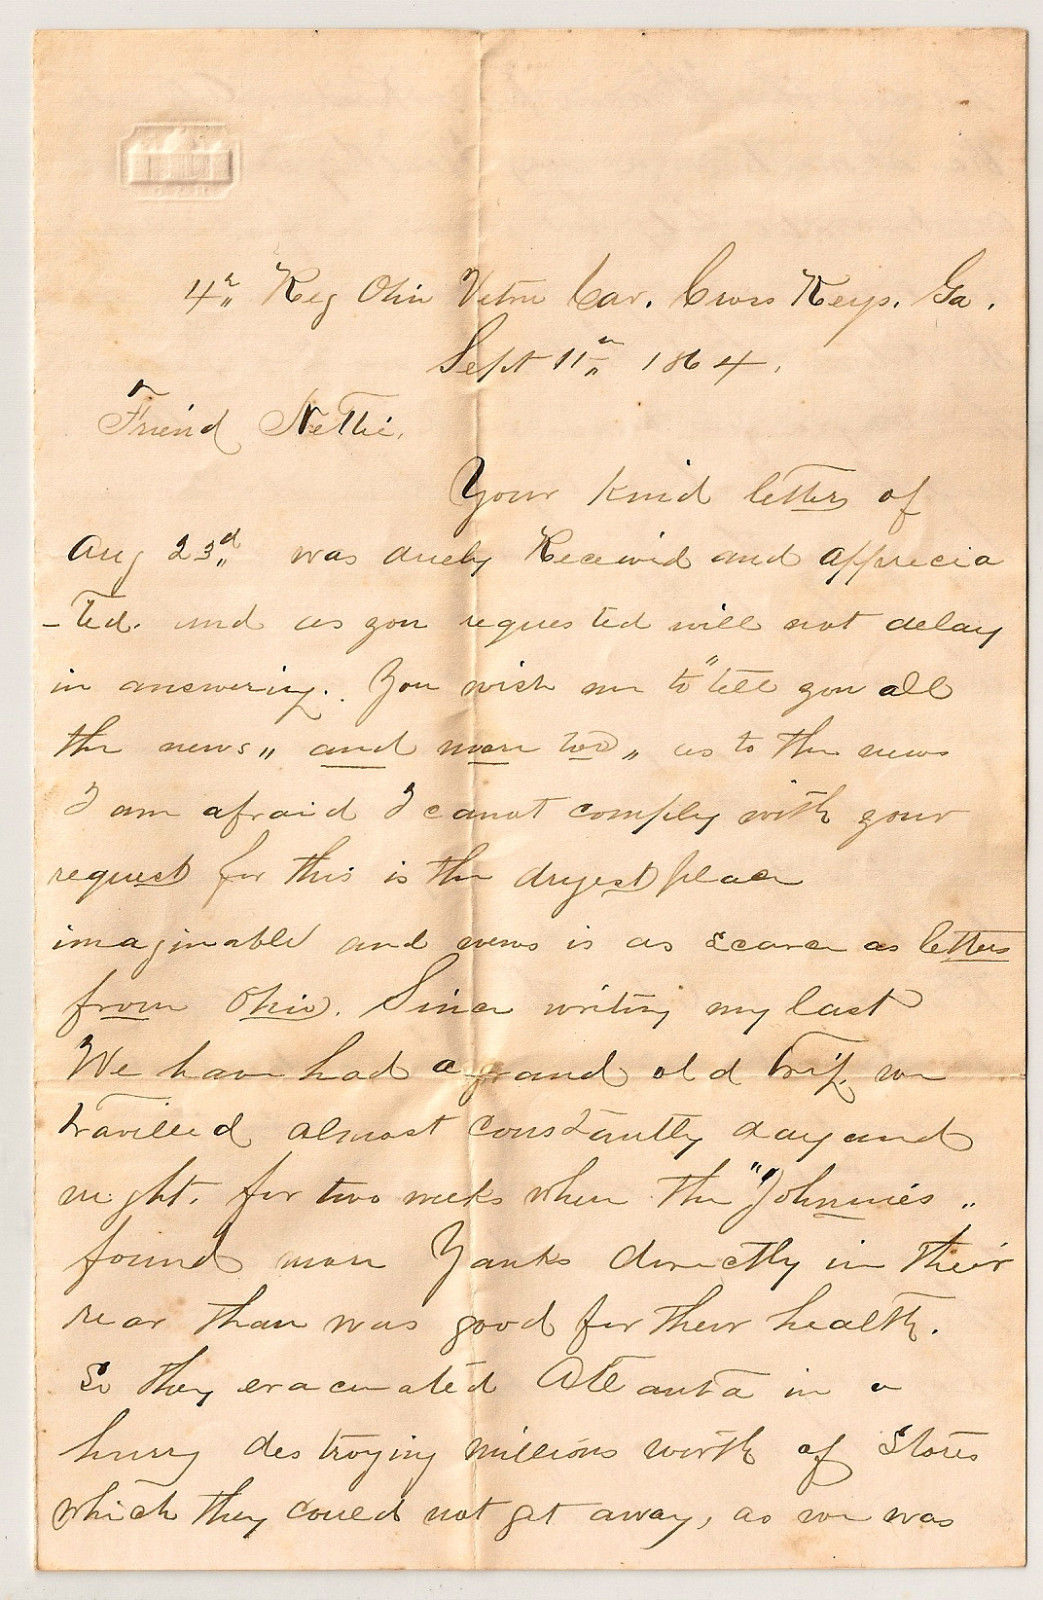 4th Reg Ohio Vetrn Cav. Cross Keys. Ga.
Sept 11th 1864.
Friend Nettie.
Your kind letter of
Aug 23d was duely Received and apprecia
-ted. and as you requested will not delay
in answering. You wish me to "tell you all
the news" and more too" as to the news
I am afraid I canot comply with your
request for this is the dryest place
imaginable and news is as scarce as letters
from Ohio. Since writing my last
We have had a grand old trip. we
travilled almost constantly day and
night. for two weeks when the "Johnnies"
found more Yanks directly in their
rear than was good for their health.
So they evacuated Atlanta in a
hurry destroying millions worth of Stores
which they could not get away, as we was